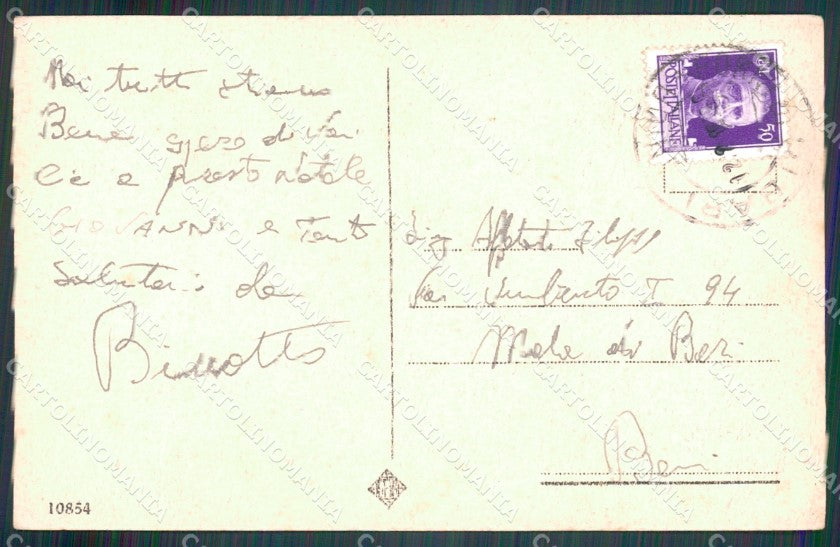 Noi tutti stiamo
Bene spero di Voi
e a presto Natale
GIOVANNI e Tanti
Saluti da
Sig.
Via Umberto I 94
Mola di Bari
Bari
10854
50
POSTE ITALIANE
BARI
CARTOLINOMANIA